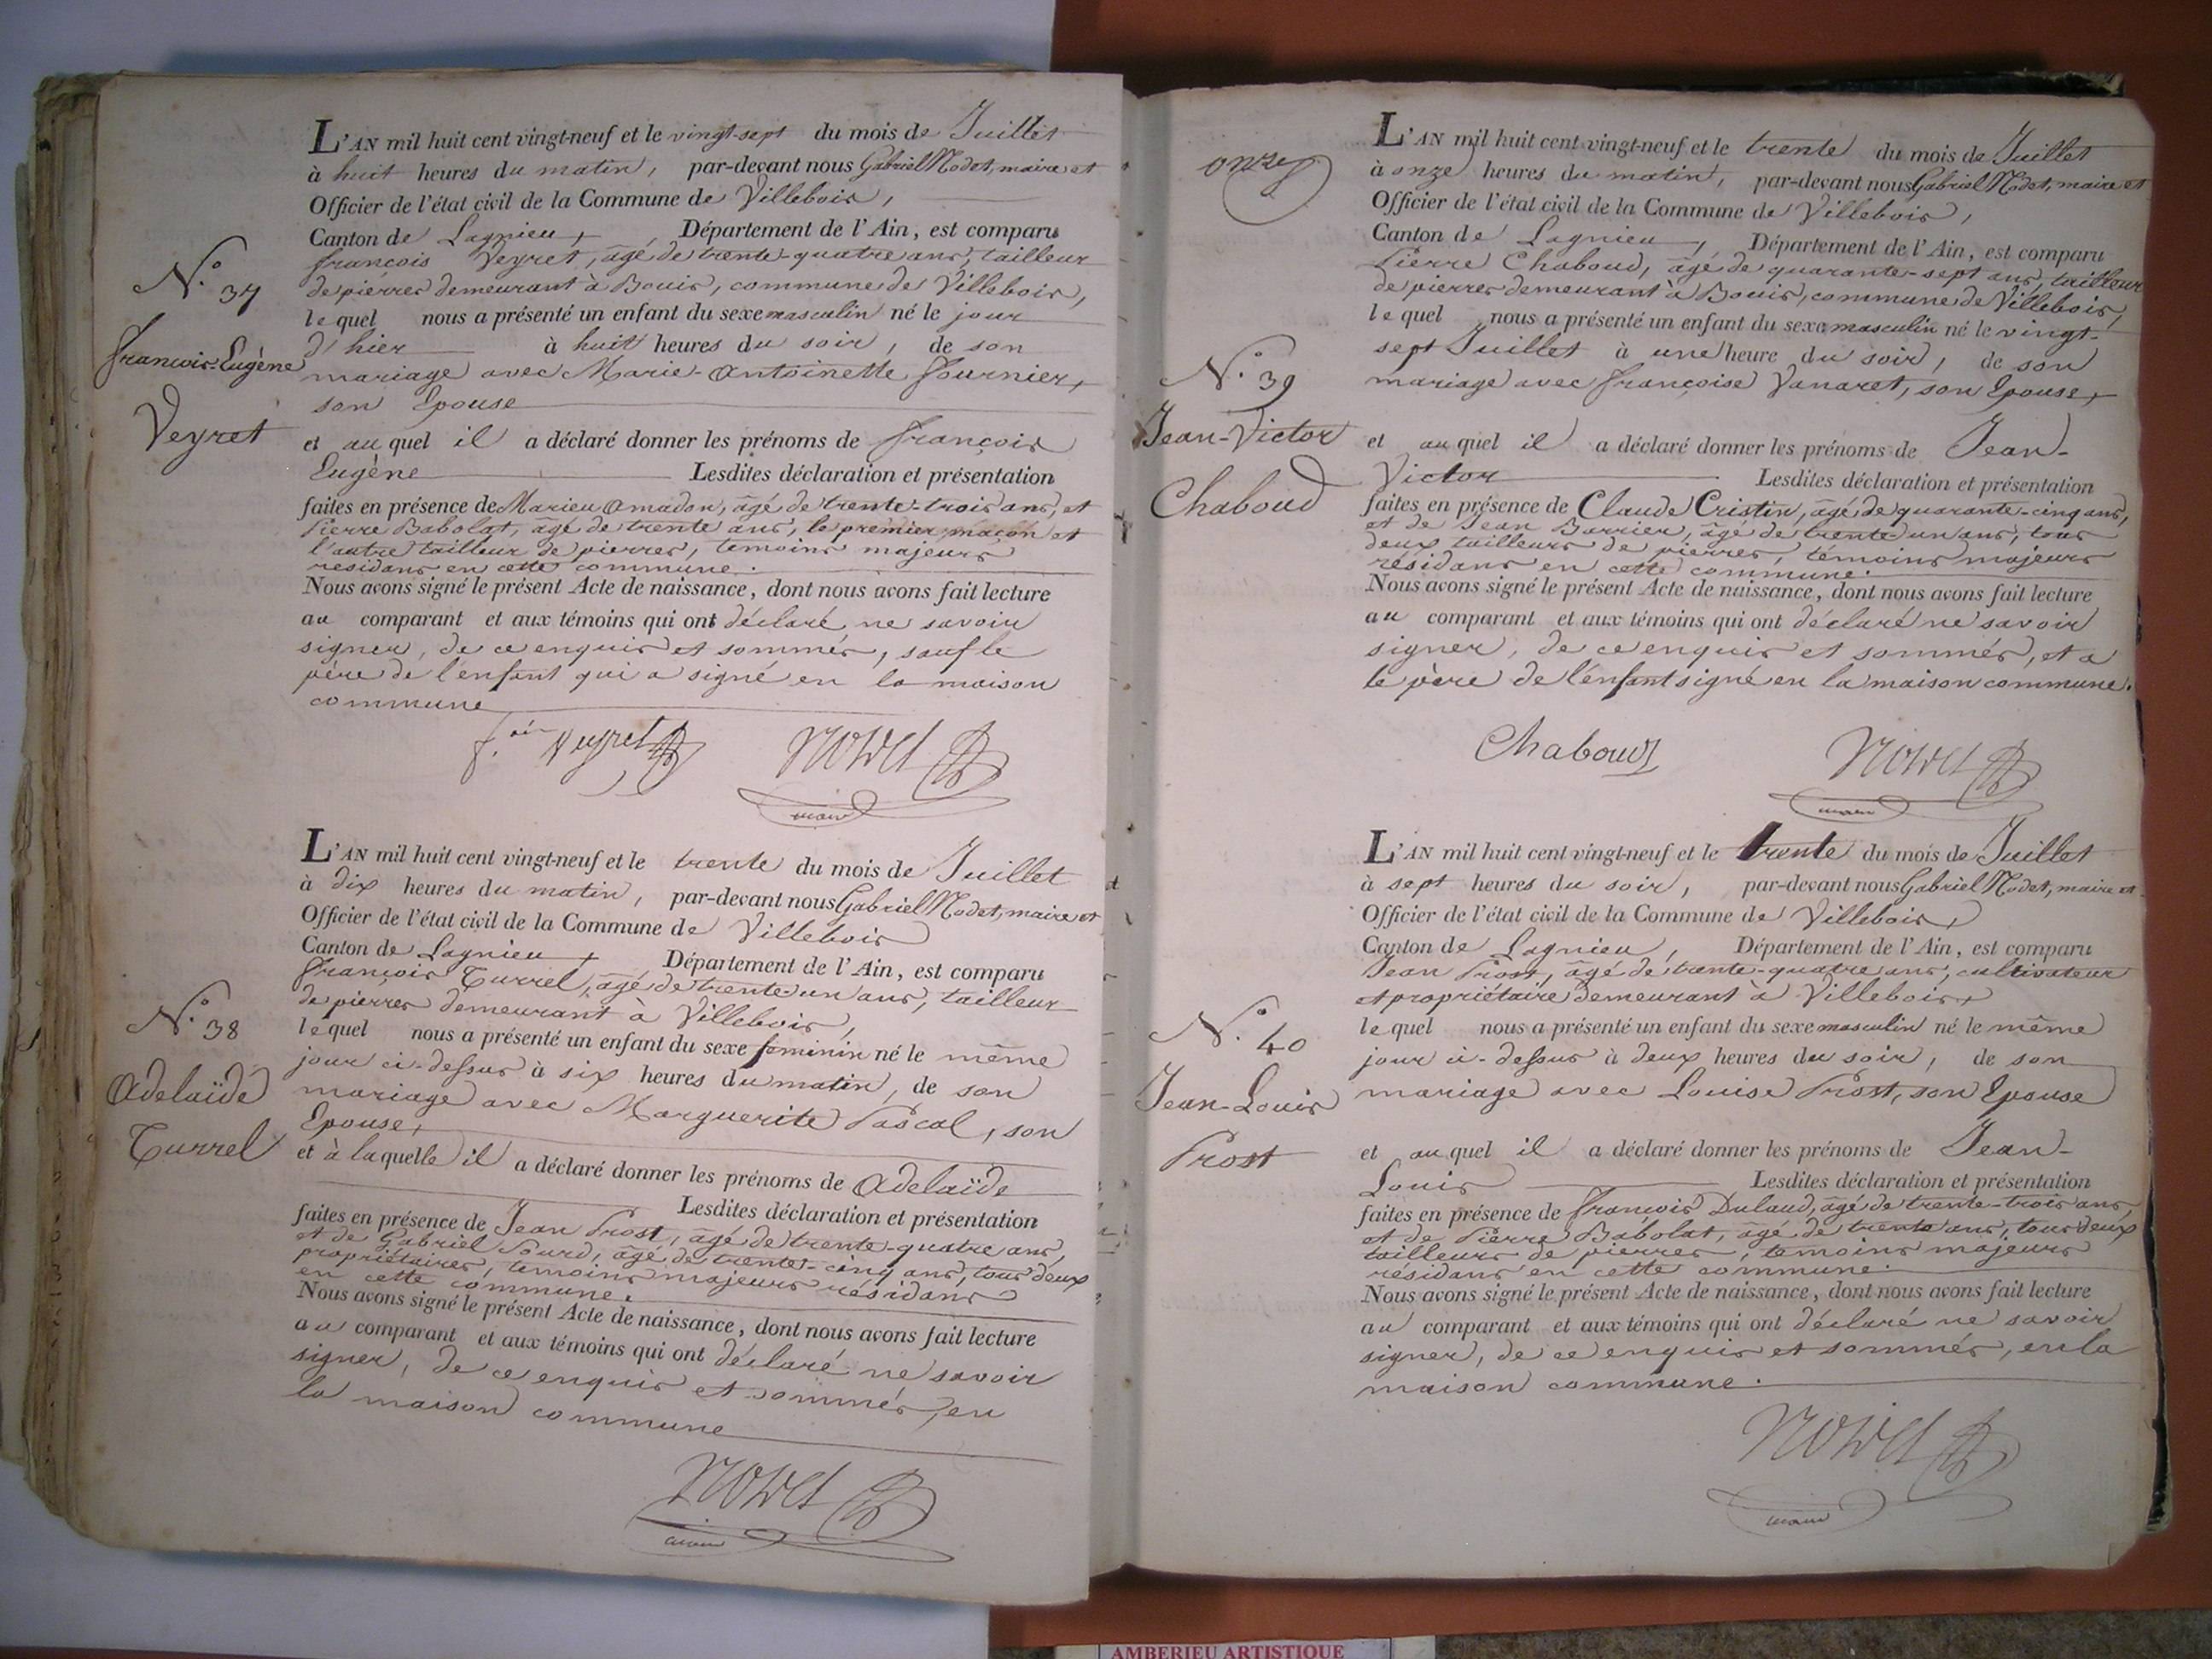 L'AN mil huit cent vingt-neuf et le vingt-sept du mois de Juillet
à huit heures du matin, par-devant nous Gabriel Nodet, maire et
Officier de l'état civil de la Commune de Villebois,
Canton de Lagnieu, Département de l'Ain, est comparu
françois Veyret, âgé de trente-quatre ans, tailleur
de pierres demeurant à Bouis, commune de Villebois,
lequel nous a présenté un enfant du sexe masculin né le jour
d'hier à huit heures du soir, de son
mariage avec Marie-Antoinette fournier,
son Epouse
et auquel il a déclaré donner les prénoms de françois
Eugène Lesdites déclaration et présentation
faites en présence de Marieu Amadon, âgé de trente-trois ans, et
Pierre Babolat, âgé de trente ans, le premier maçon et
l'autre tailleur de pierres, témoins majeurs
résidans en cette commune.
Nous avons signé le présent Acte de naissance, dont nous avons fait lecture
au comparant et aux témoins qui ont déclaré ne savoir
signer, de ce enquis et sommés, sauf le
père de l'enfant qui a signé en la maison
commune
N.° 37
francois-Eugène
Veyret
Veyret
Nodet
maire
L'AN mil huit cent vingt-neuf et le trente du mois de Juillet
à dix heures du matin, par-devant nous Gabriel Nodet, maire et
Officier de l'état civil de la Commune de Villebois
Canton de Lagnieu, Département de l'Ain, est comparu
François Turrel, âgé de trente-un ans, tailleur
de pierres demeurant à Villebois,
lequel nous a présenté un enfant du sexe feminin né le même
jour ci-dessus à six heures du matin, de son
mariage avec Marguerite Pascal, son
Epouse,
et à laquelle il a déclaré donner les prénoms de Adelaïde
Lesdites déclaration et présentation
faites en présence de Jean Prost, âgé de trente-quatre ans,
et de Gabriel Sourd, âgé de trente-cinq ans, tous deux
propriétaires, temoins majeurs résidans
en cette commune.
Nous avons signé le présent Acte de naissance, dont nous avons fait lecture
au comparant et aux témoins qui ont déclaré ne savoir
signer, de ce enquis et sommés, en
la maison commune
N.° 38
Adelaïde
Turrel
Nodet
maire
onze
L'AN mil huit cent vingt-neuf et le trente du mois de Juillet
à onze heures du matin, par-devant nous Gabriel Nodet, maire et
Officier de l'état civil de la Commune de Villebois,
Canton de Lagnieu, Département de l'Ain, est comparu
Pierre Chaboud, âgé de quarante-sept ans, tailleur
de pierres demeurant à Bouis, commune de Villebois,
lequel nous a présenté un enfant du sexe masculin né le vingt-
sept Juillet à une heure du soir, de son
mariage avec françoise Vanaret, son Epouse,
et auquel il a déclaré donner les prénoms de Jean-
Victor Lesdites déclaration et présentation
faites en présence de Claude Cristin, âgé de quarante-cinq ans,
et de Jean Barrier, âgé de trente-un ans, tous
deux tailleurs de pierres, témoins majeurs
résidans en cette commune.
Nous avons signé le présent Acte de naissance, dont nous avons fait lecture
au comparant et aux témoins qui ont déclaré ne savoir
signer, de ce enquis et sommés, et a
le père de l'enfant signé en la maison commune.
N.° 39
Jean-Victor
Chaboud
Chaboud
Nodet
maire
L'AN mil huit cent vingt-neuf et le trente du mois de Juillet
à sept heures du soir, par-devant nous Gabriel Nodet, maire et
Officier de l'état civil de la Commune de Villebois,
Canton de Lagnieu, Département de l'Ain, est comparu
Jean Prost, âgé de trente-quatre ans, cultivateur
et propriétaire demeurant à Villebois,
lequel nous a présenté un enfant du sexe masculin né le même
jour ci-dessus à deux heures du soir, de son
mariage avec Louise Prost, son Epouse
et auquel il a déclaré donner les prénoms de Jean-
Louis Lesdites déclaration et présentation
faites en présence de François Dulaud, âgé de trente-trois ans,
et de Pierre Babolat, âgé de trente ans, tous deux
tailleurs de pierres, témoins majeurs
résidans en cette commune.
Nous avons signé le présent Acte de naissance, dont nous avons fait lecture
au comparant et aux témoins qui ont déclaré ne savoir
signer, de ce enquis et sommés, en la
maison commune.
N.° 40
Jean-Louis
Prost
Nodet
maire
AMBERIEU ARTISTIQUE